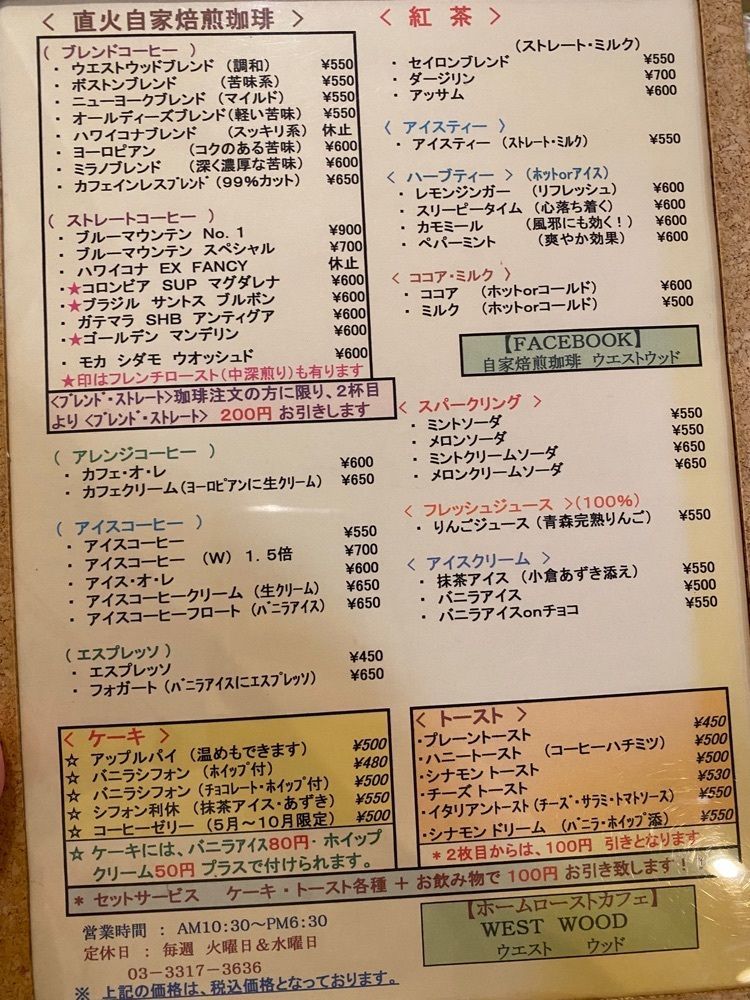 < 直火自家焙煎珈琲 >
( ブレンドコーヒー )
・ ウエストウッドブレンド (調和) ¥550
・ ボストンブレンド (苦味系) ¥550
・ ニューヨークブレンド (マイルド) ¥550
・ オールディーズブレンド(軽い苦味) ¥550
・ ハワイコナブレンド (スッキリ系) 休止
・ ヨーロピアン (コクのある苦味) ¥600
・ ミラノブレンド (深く濃厚な苦味) ¥600
・ カフェインレスブレンド(99%カット) ¥650
( ストレートコーヒー )
・ ブルーマウンテン No. 1 ¥900
・ ブルーマウンテン スペシャル ¥700
・ ハワイコナ EX FANCY 休止
・★コロンビア SUP マグダレナ ¥600
・★ブラジル サントス ブルボン ¥600
・ ガテマラ SHB アンティグア ¥600
・★ゴールデン マンデリン ¥600
・ モカ シダモ ウオッシュド ¥600
★印はフレンチロースト(中深煎り)も有ります
<ブレンド・ストレート>珈琲注文の方に限り、2杯目
より <ブレンド・ストレート> 200円 お引きします
( アレンジコーヒー )
・ カフェ・オ・レ ¥600
・ カフェクリーム(ヨーロピアンに生クリーム) ¥650
( アイスコーヒー )
・ アイスコーヒー ¥550
・ アイスコーヒー (W) 1.5倍 ¥700
・ アイス・オ・レ ¥600
・ アイスコーヒークリーム (生クリーム) ¥650
・ アイスコーヒーフロート (バニラアイス) ¥650
( エスプレッソ )
・ エスプレッソ ¥450
・ フォガート (バニラアイスにエスプレッソ) ¥650
< ケーキ >
☆ アップルパイ (温めもできます) ¥500
☆ バニラシフォン (ホイップ付) ¥480
☆ バニラシフォン (チョコレート・ホイップ付) ¥500
☆ シフォン利休 (抹茶アイス・あずき) ¥550
☆ コーヒーゼリー (5月〜10月限定) ¥500
☆ ケーキには、バニラアイス80円・ホイップ
クリーム50円 プラスで付けられます。
< 紅 茶 >
(ストレート・ミルク)
・ セイロンブレンド ¥550
・ ダージリン ¥700
・ アッサム ¥600
< アイスティー >
・ アイスティー (ストレート・ミルク) ¥550
< ハーブティー > (ホットorアイス)
・ レモンジンガー (リフレッシュ) ¥600
・ スリーピータイム (心落ち着く) ¥600
・ カモミール (風邪にも効く!) ¥600
・ ペパーミント (爽やか効果) ¥600
< ココア・ミルク >
・ ココア (ホットorコールド) ¥600
・ ミルク (ホットorコールド) ¥500
【FACEBOOK】
自家焙煎珈琲 ウエストウッド
< スパークリング >
・ ミントソーダ ¥550
・ メロンソーダ ¥550
・ ミントクリームソーダ ¥650
・ メロンクリームソーダ ¥650
< フレッシュジュース >(100%)
・ りんごジュース (青森完熟りんご) ¥550
< アイスクリーム >
・ 抹茶アイス (小倉あずき添え) ¥550
・ バニラアイス ¥500
・ バニラアイスonチョコ ¥550
< トースト >
・プレーントースト ¥450
・ハニートースト (コーヒーハチミツ) ¥500
・シナモン トースト ¥500
・チーズ トースト ¥530
・イタリアントースト(チーズ・サラミ・トマトソース) ¥550
・シナモン ドリーム (バニラ・ホイップ添) ¥550
* 2枚目からは、100円 引きとなります
* セットサービス ケーキ・トースト各種 + お飲み物で 100円 お引き致します!!
営業時間 : AM10:30〜PM6:30
定休日 : 毎週 火曜日&水曜日
03-3317-3636
※ 上記の価格は、税込価格となっております。
【ホームローストカフェ】
WEST WOOD
ウエスト ウッド